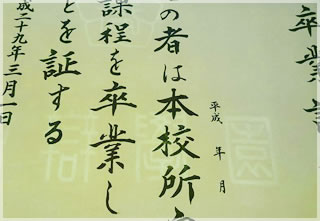 卒業証
平成 年 月
の者は本校所
課程を卒業し
とを証する
成二十九年三月一日